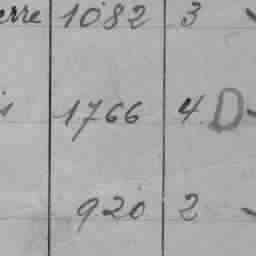 erre 1082 3
1766 4 D
920 2